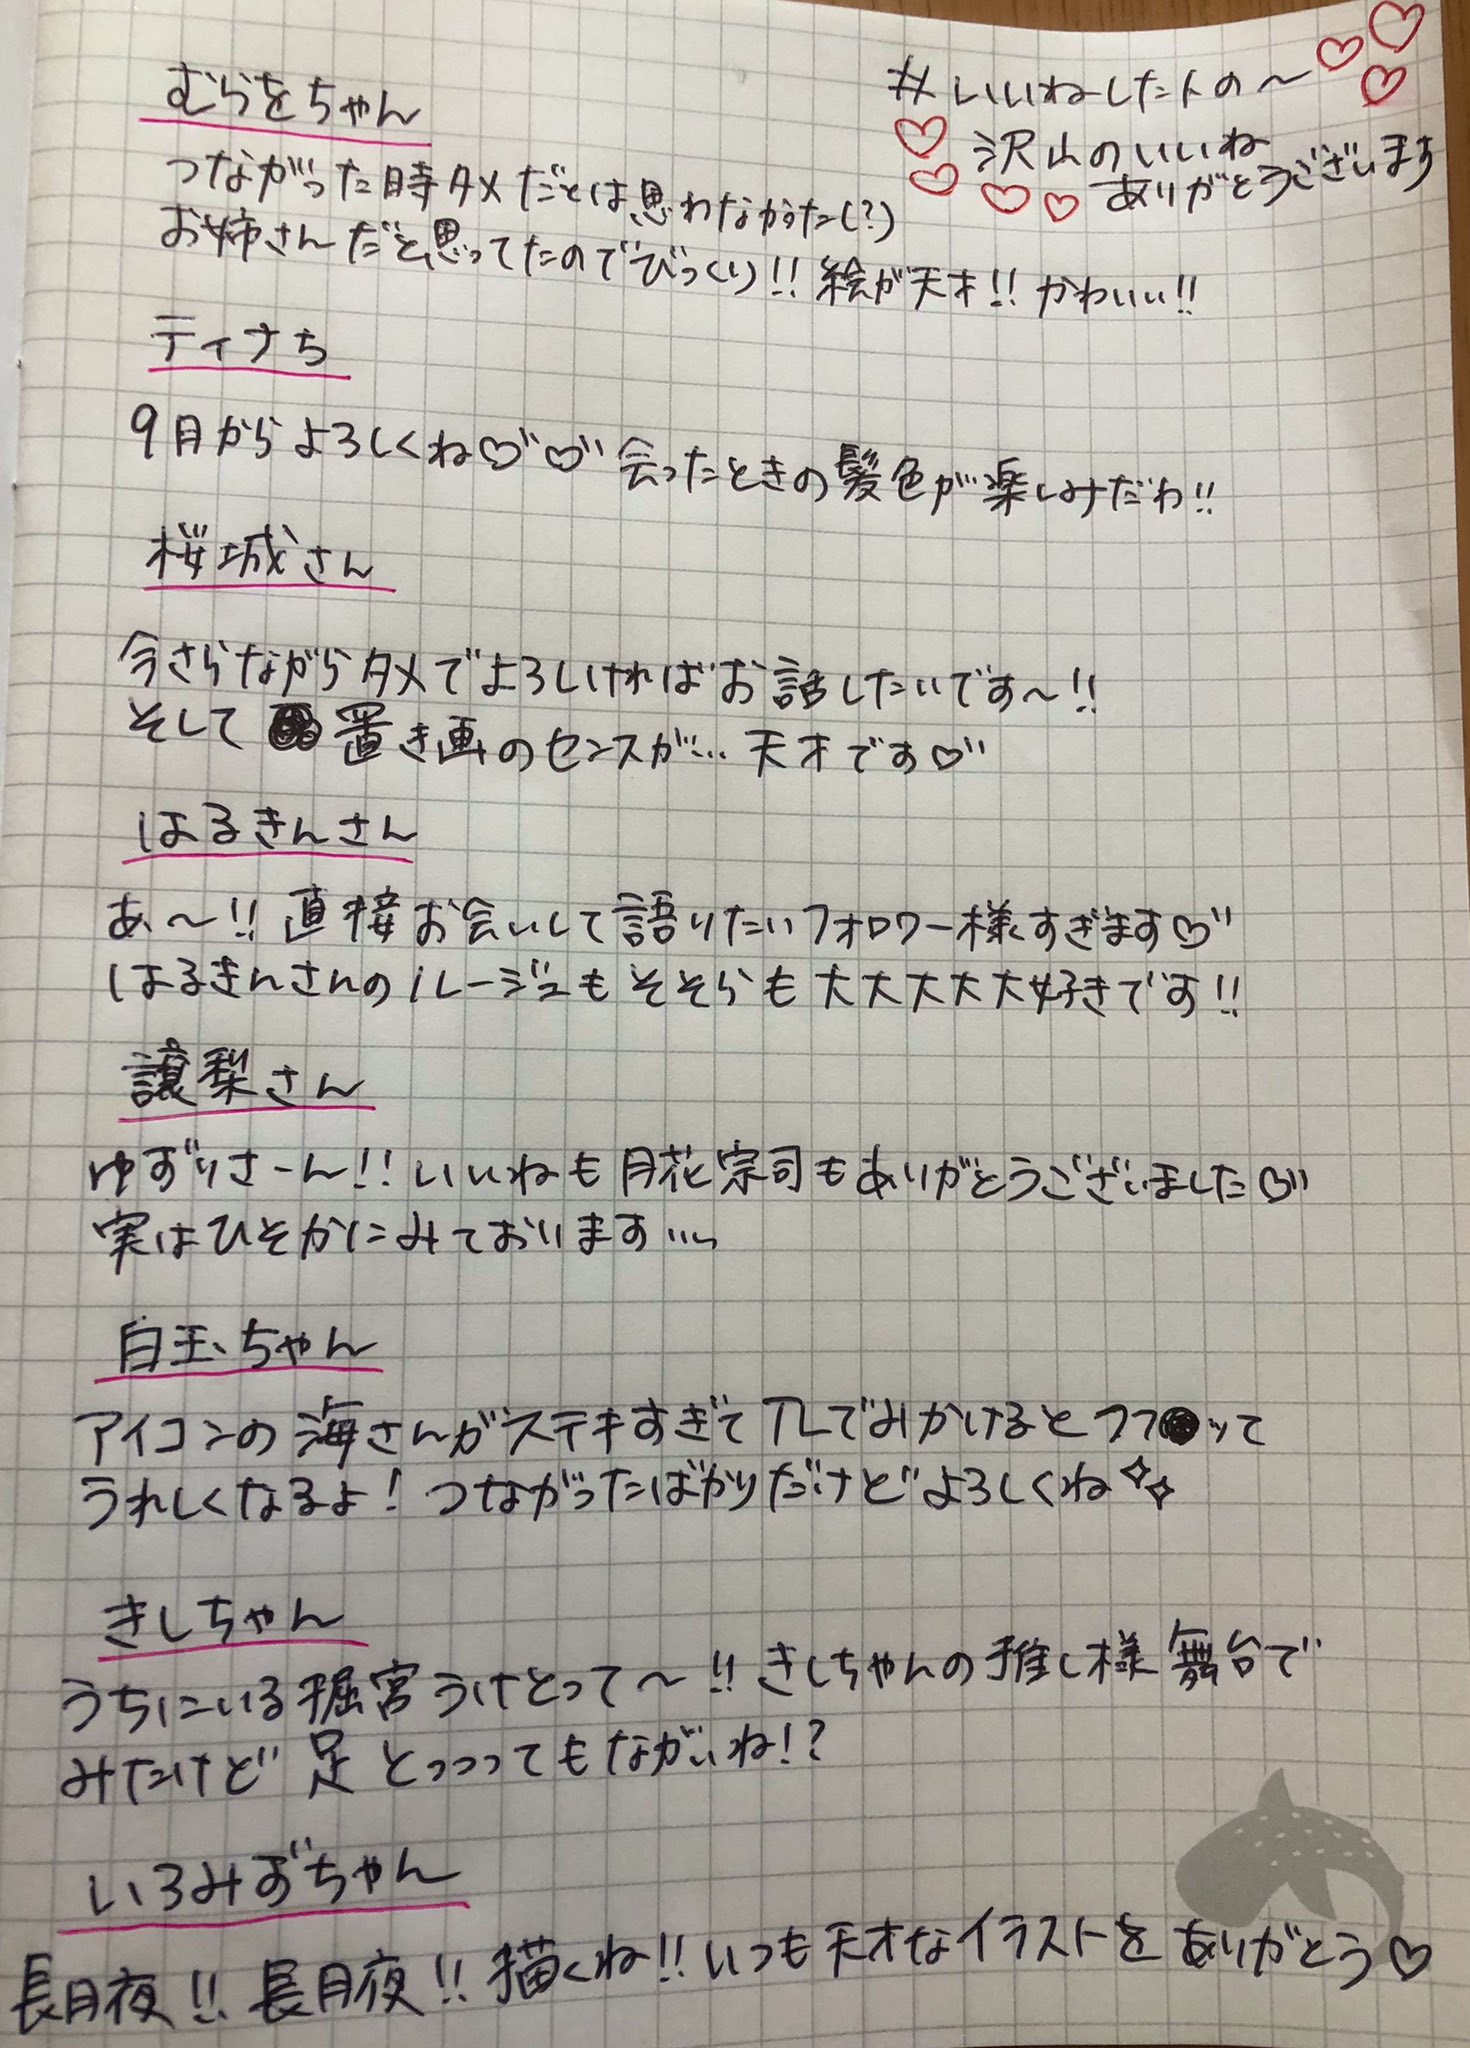 #いいねした人の〜
沢山のいいね
ありがとうございます
むらをちゃん
つながった時タメだとは思わなかった(?)
お姉さんだと思ってたのでびっくり!! 絵が天才!! かわいい!!
ティナち
9月からよろしくね♡゛♡゛会ったときの髪色が楽しみだわ!!
桜城さん
今さらながらタメでよろしければお話したいです〜!!
そして 置き画のセンスが… 天才です♡゛
はるきんさん
あ〜!! 直接お会いして語りたいフォロワー様すぎます♡゛
はるきんさんのルージュもそそらも大大大大大好きです!!
譲梨さん
ゆずりさーん!! いいねも月花宗司もありがとうございました♡゛
実はひそかにみております…
白玉ちゃん
アイコンの海さんがステキすぎてTLでみかけるとフフッて
うれしくなるよ! つながったばかりだけどよろしくね✧✧
きしちゃん
うちにいる堀宮うけとって〜!! きしちゃんの推し様舞台で
みたけど足とっっってもながいね!?
いろみずちゃん
長月夜!! 長月夜!! 描くね!! いつも天才なイラストをありがとう♡